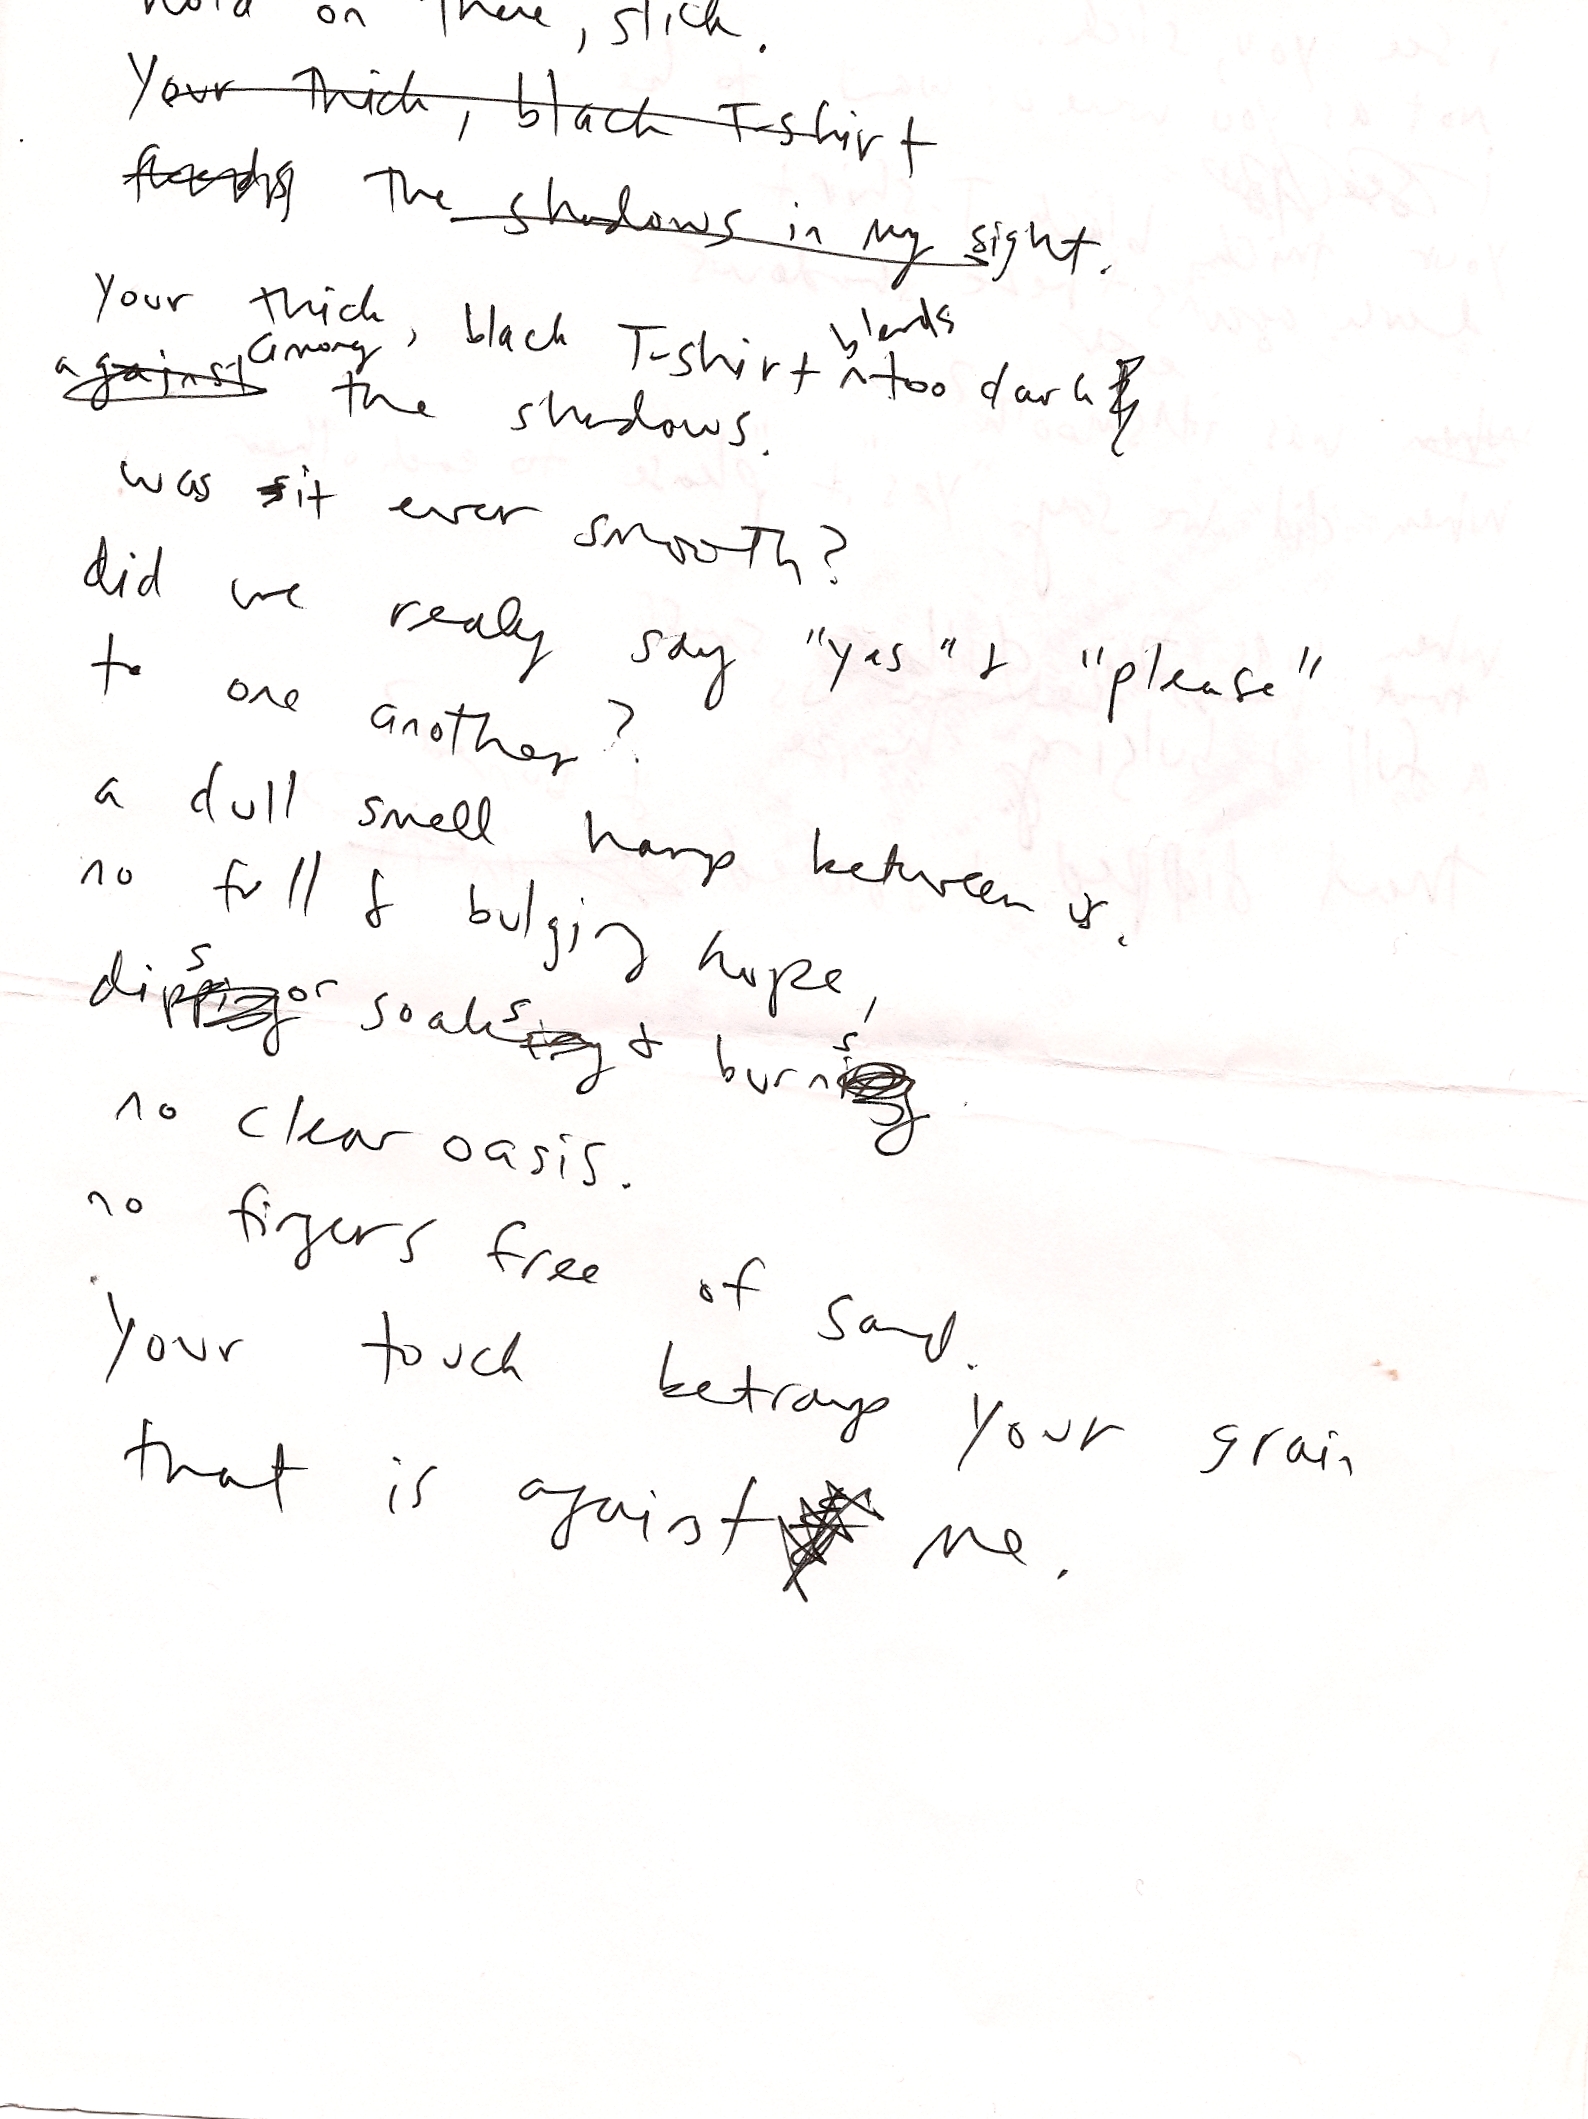 hold on there, slick.
Your thick, black T-shirt
the shadows in my sight.
your thick, black T-shirt blends too dark
against among the shadows.
was it ever smooth?
did we really say "yes" & "please"
to one another?
a dull smell hangs between us.
no full & bulging hope,
dips or soaks & burns
no clear oasis.
no fingers free of sand.
your touch betrays your grain
that is against me.